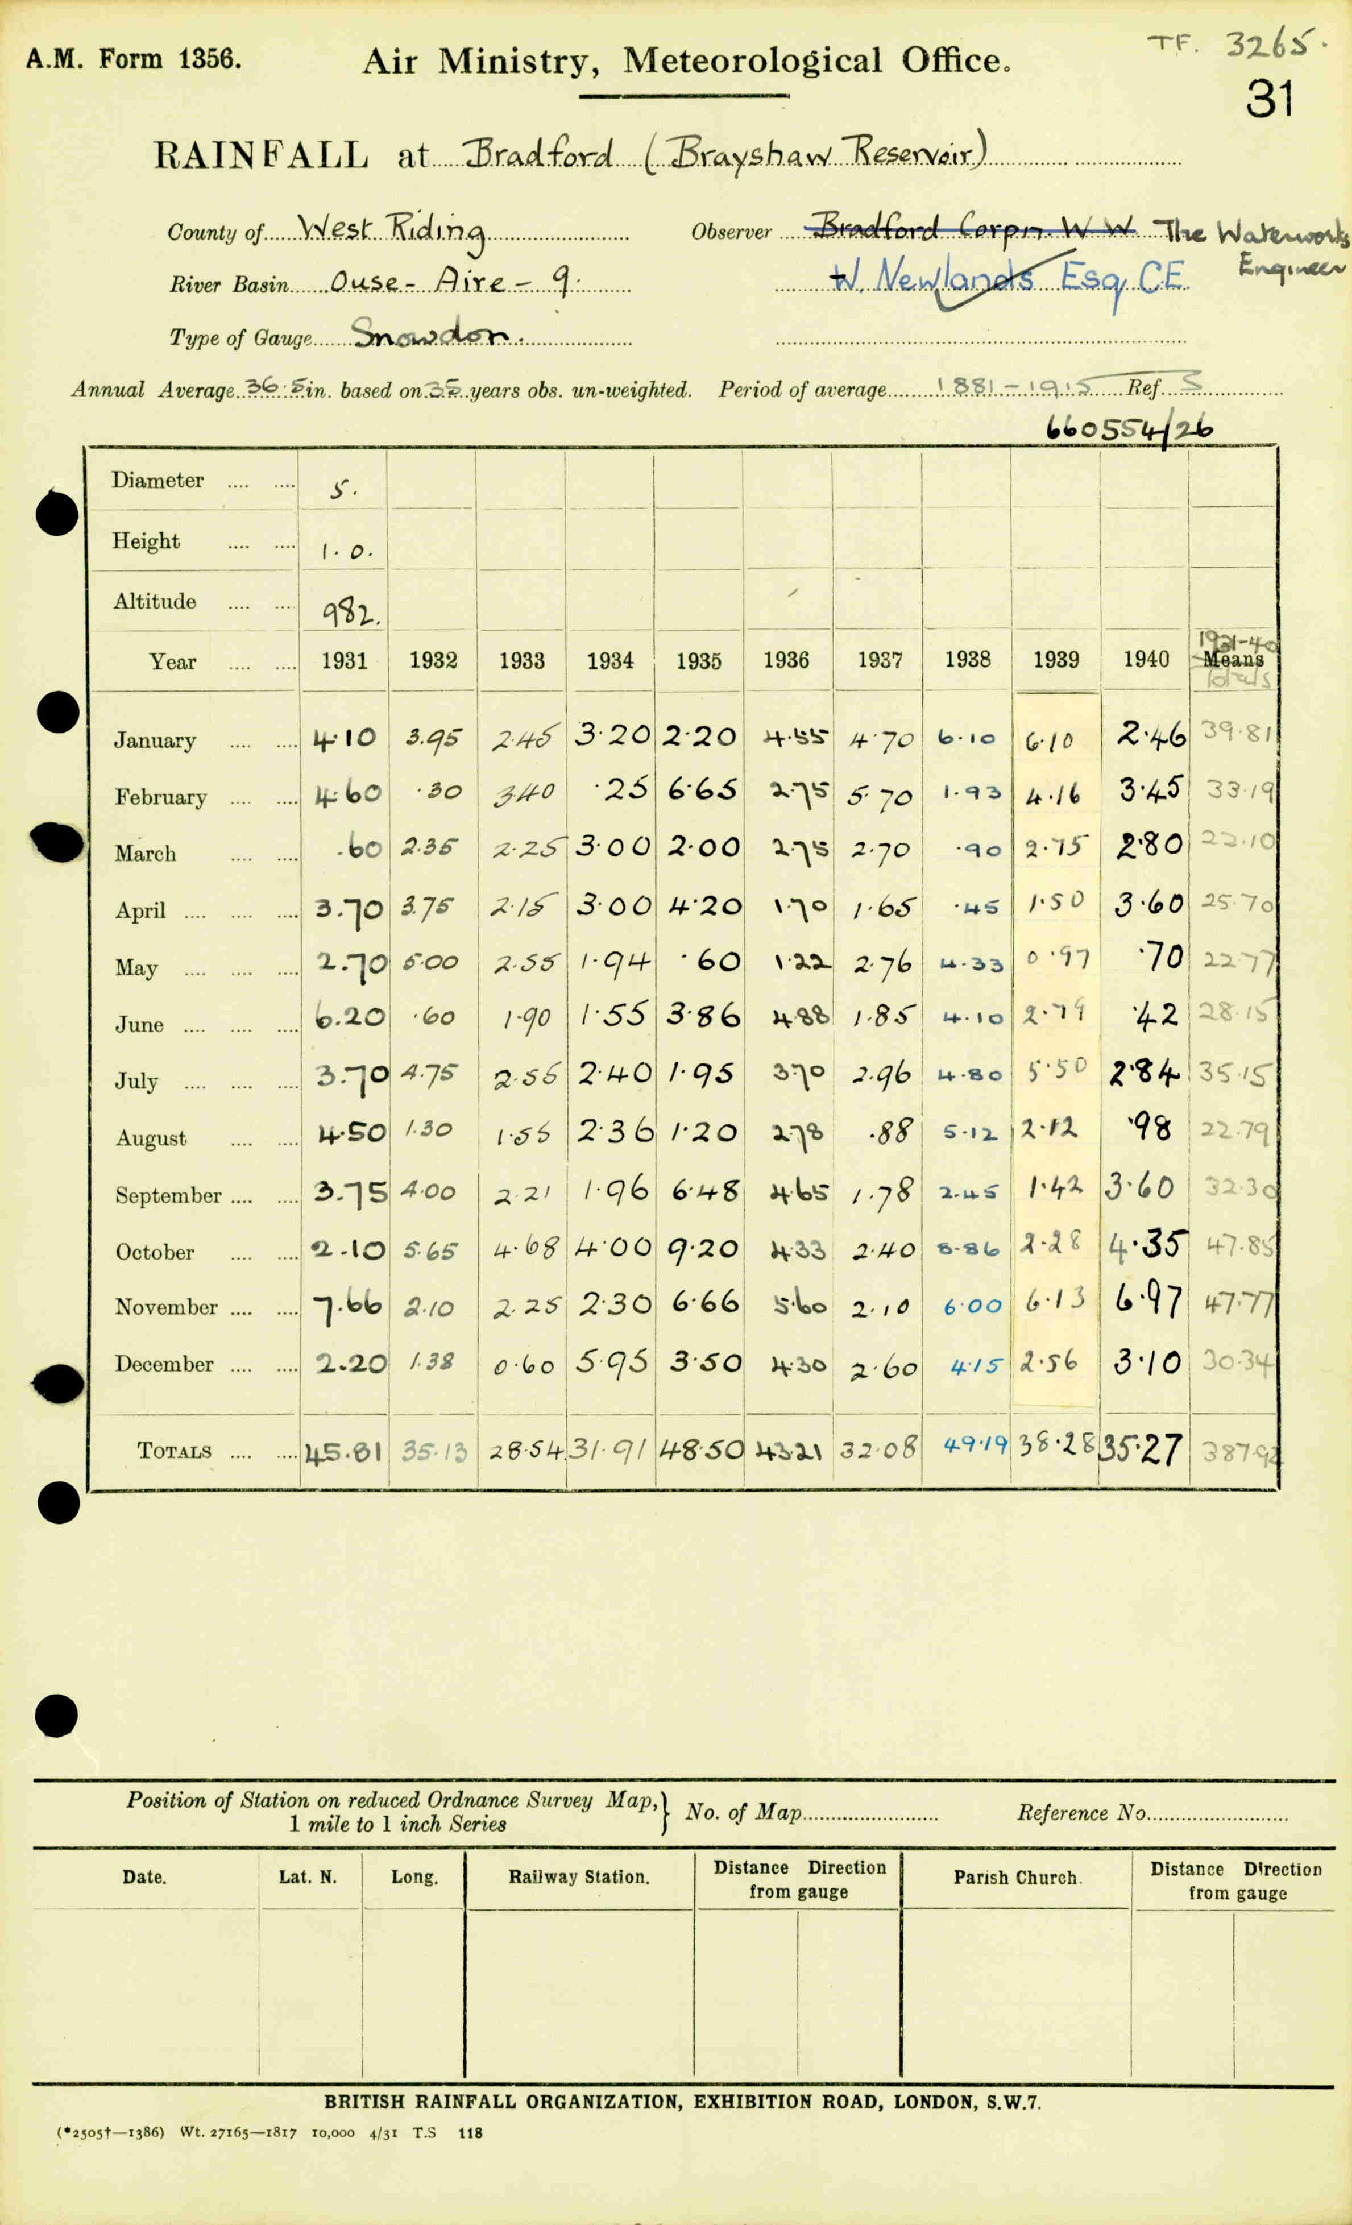 A.M. Form 1356.
Air Ministry, Meteorological Office.
TF. 3265.
31
RAINFALL at Bradford (Brayshaw Reservoir)
County of West Riding
Observer Bradford Corpn. W W The Waterworks Engineer
River Basin Ouse - Aire - 9.
W. Newlands Esq CE
Type of Gauge Snowdon.
Annual Average 36.5 in. based on 35 years obs. un-weighted. Period of average 1881-1915 Ref. S
660554/26
Diameter .... .... 5.
Height .... .... 1.0.
Altitude .... .... 982.
Year .... .... 1931 1932 1933 1934 1935 1936 1937 1938 1939 1940 1931-40 Means Totals
January .... .... 4.10 3.95 2.45 3.20 2.20 4.55 4.70 6.10 6.10 2.46 39.81
February .... .... 4.60 .30 3.40 .25 6.65 2.75 5.70 1.93 4.16 3.45 33.19
March .... .... .60 2.35 2.25 3.00 2.00 2.75 2.70 .90 2.75 2.80 22.10
April .... .... .... 3.70 3.75 2.15 3.00 4.20 1.70 1.65 .45 1.50 3.60 25.70
May .... .... .... 2.70 5.00 2.55 1.94 .60 1.22 2.76 4.33 0.97 .70 22.77
June .... .... .... 6.20 .60 1.90 1.55 3.86 4.88 1.85 4.10 2.79 .42 28.15
July .... .... .... 3.70 4.75 2.55 2.40 1.95 3.70 2.96 4.80 5.50 2.84 35.15
August .... .... 4.50 1.30 1.55 2.36 1.20 2.78 .88 5.12 2.12 .98 22.79
September .... .... 3.75 4.00 2.21 1.96 6.48 4.65 1.78 2.45 1.42 3.60 32.30
October .... .... 2.10 5.65 4.68 4.00 9.20 4.33 2.40 8.86 2.28 4.35 47.85
November .... .... 7.66 2.10 2.25 2.30 6.66 5.60 2.10 6.00 6.13 6.97 47.77
December .... .... 2.20 1.38 0.60 5.95 3.50 4.30 2.60 4.15 2.56 3.10 30.34
TOTALS .... .... 45.81 35.13 28.54 31.91 48.50 43.21 32.08 49.19 38.28 35.27 387.92
Position of Station on reduced Ordnance Survey Map, 1 mile to 1 inch Series } No. of Map Reference No.
Date. Lat. N. Long. Railway Station. Distance Direction from gauge Parish Church. Distance Direction from gauge
BRITISH RAINFALL ORGANIZATION, EXHIBITION ROAD, LONDON, S.W.7.
(*2505†—1386) Wt. 27165—1817 10,000 4/31 T.S 118